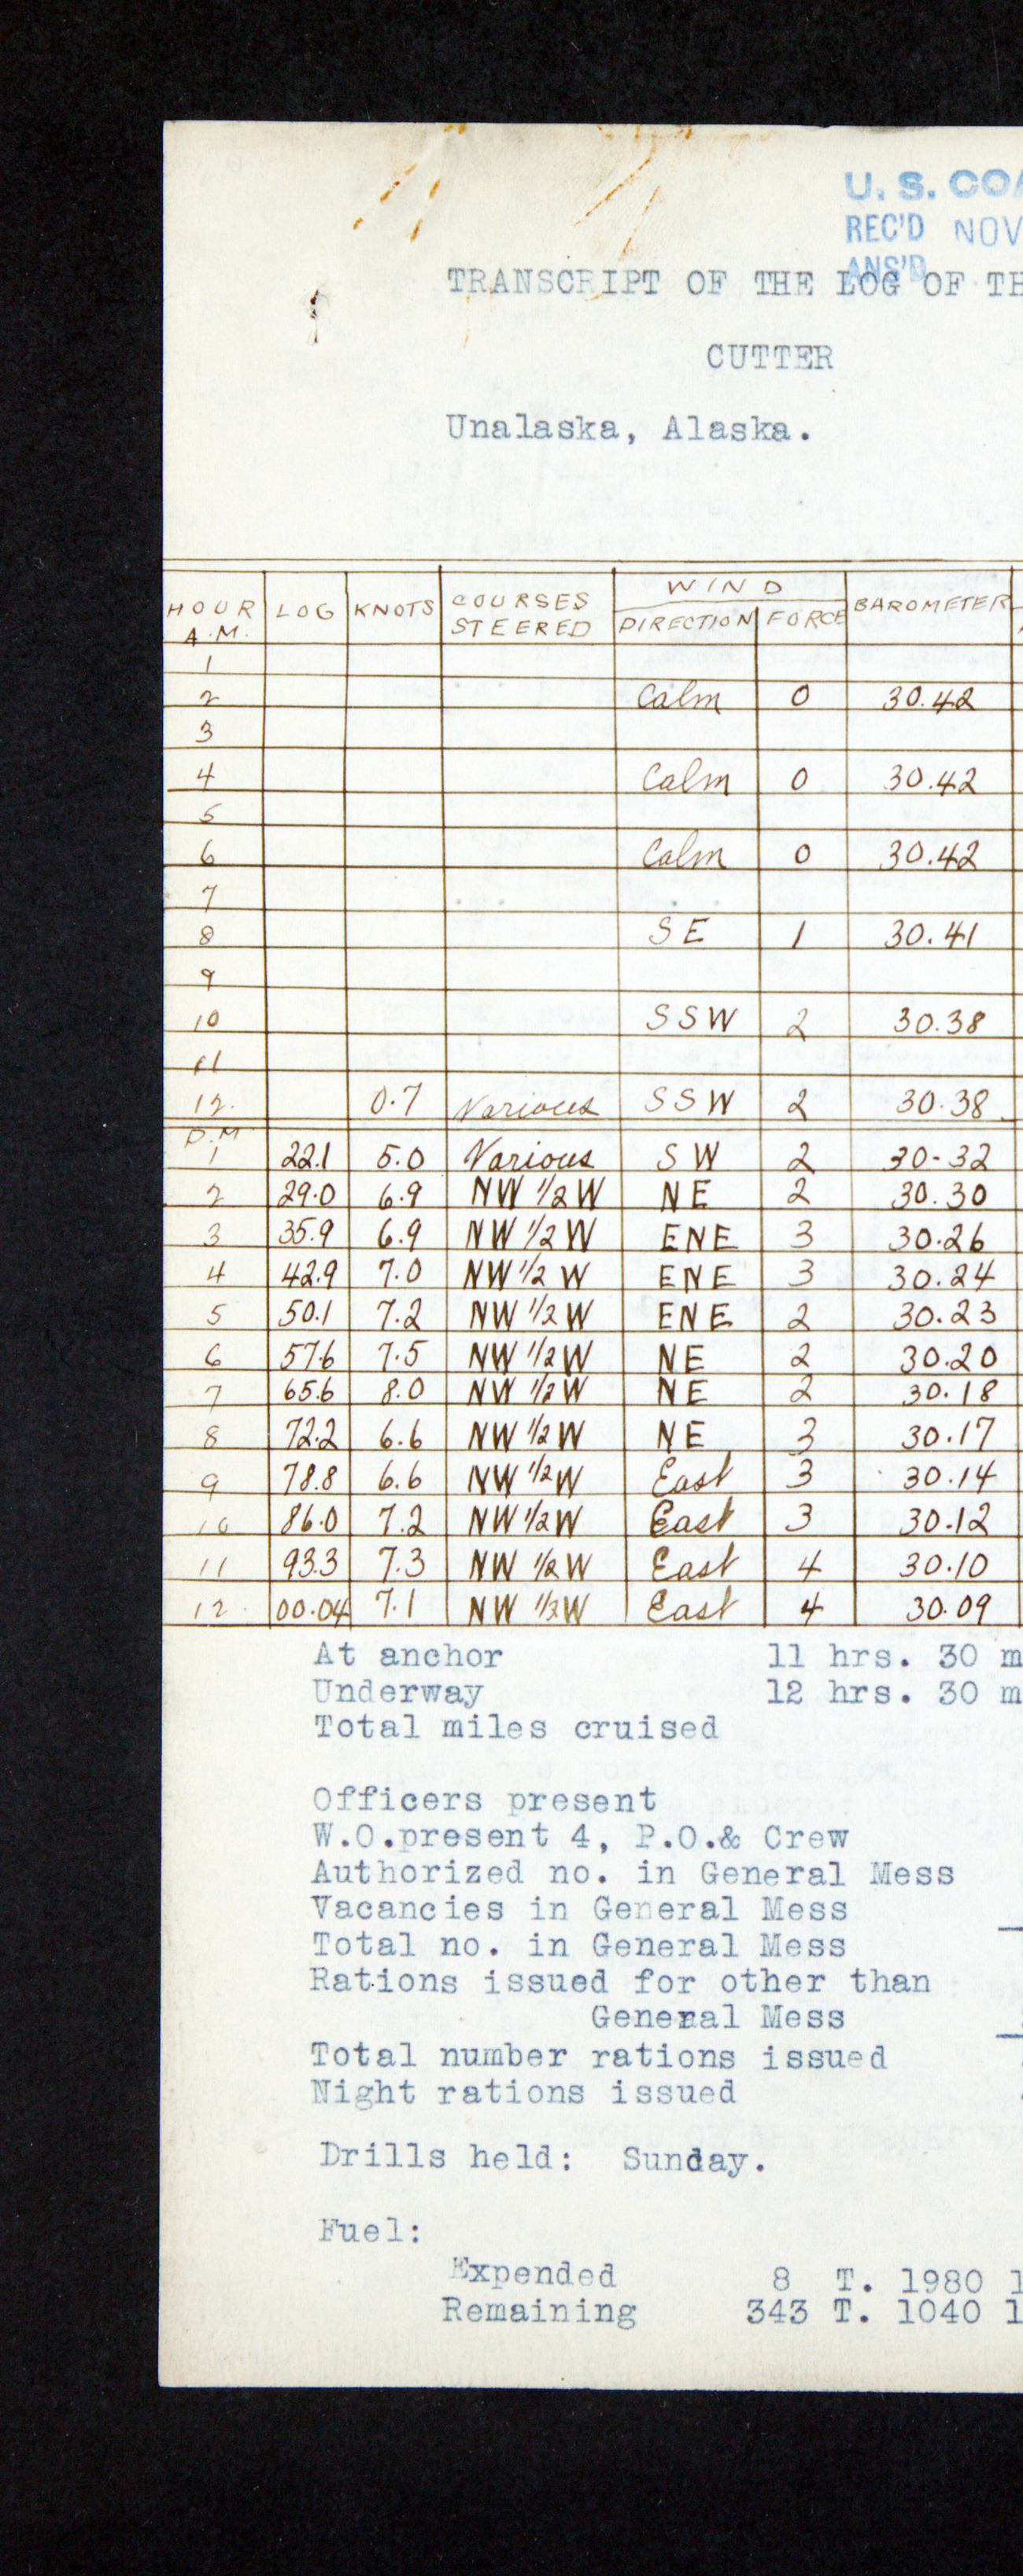 U. S. COA
REC'D NOV
ANS'D
TRANSCRIPT OF THE LOG OF TH
CUTTER
Unalaska, Alaska.
HOUR LOG KNOTS COURSES STEERED WIND DIRECTION FORCE BAROMETER
A.M.
1
2 Calm 0 30.42
3
4 Calm 0 30.42
5
6 Calm 0 30.42
7
8 SE 1 30.41
9
10 SSW 2 30.38
11
12. 0.7 Various SSW 2 30.38
P.M
1 22.1 5.0 Various SW 2 30-32
2 29.0 6.9 NW 1/2 W NE 2 30.30
3 35.9 6.9 NW 1/2 W ENE 3 30.26
4 42.9 7.0 NW 1/2 W ENE 3 30.24
5 50.1 7.2 NW 1/2 W ENE 2 30.23
6 57.6 7.5 NW 1/2 W NE 2 30.20
7 65.6 8.0 NW 1/2 W NE 2 30.18
8 72.2 6.6 NW 1/2 W NE 3 30.17
9 78.8 6.6 NW 1/2 W East 3 30.14
10 86.0 7.2 NW 1/2 W East 3 30.12
11 93.3 7.3 NW 1/2 W East 4 30.10
12. 00.04 7.1 NW 1/2 W East 4 30.09
At anchor 11 hrs. 30 m
Underway 12 hrs. 30 m
Total miles cruised
Officers present
W.O.present 4, P.O.& Crew
Authorized no. in General Mess
Vacancies in General Mess
Total no. in General Mess
Rations issued for other than
General Mess
Total number rations issued
Night rations issued
Drills held: Sunday.
Fuel:
Expended 8 T. 1980 l
Remaining 343 T. 1040 l